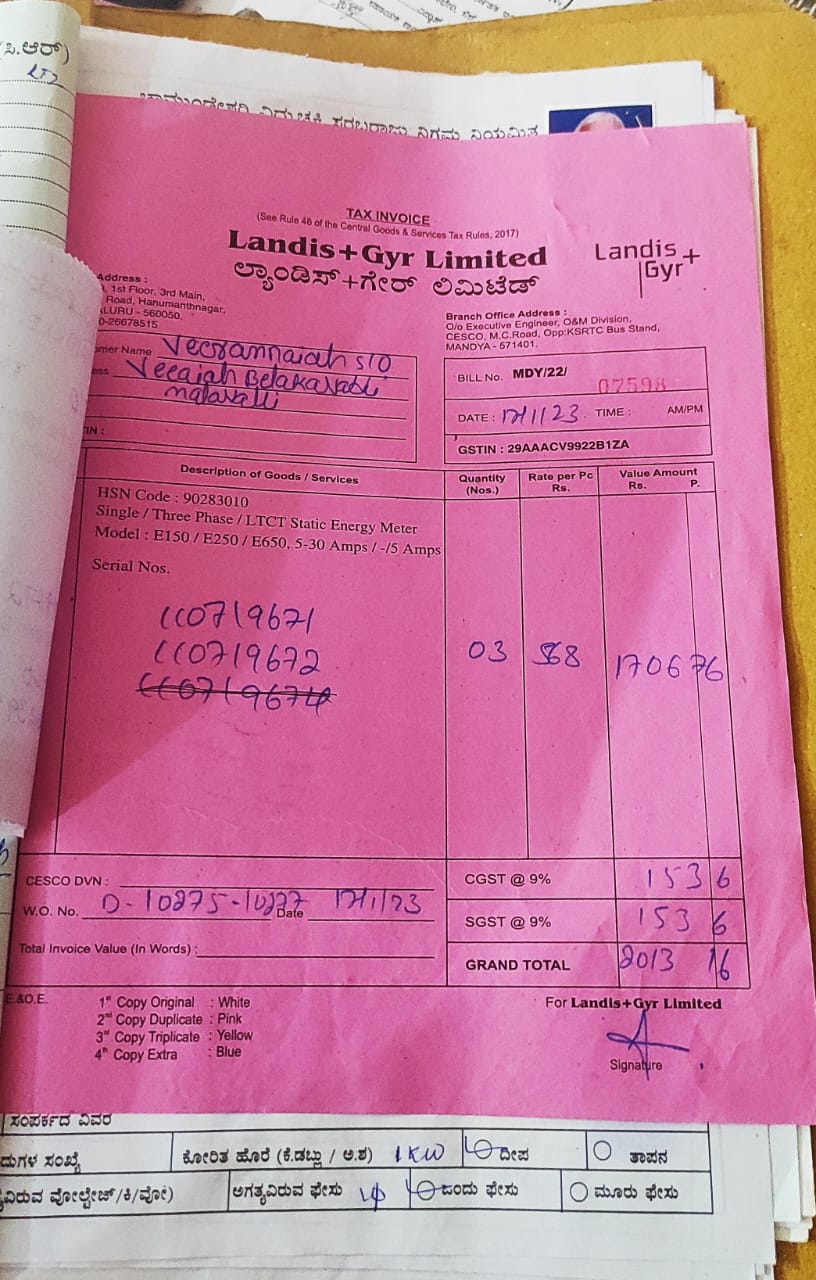 (ಸಿ.ಆರ್)
ಚಾಮುಂಡೇಶ್ವರಿ ವಿದ್ಯುಚ್ಛಕ್ತಿ ಸರಬರಾಜು ನಿಗಮ ನಿಯಮಿತ
TAX INVOICE
(See Rule 46 of the Central Goods & Services Tax Rules, 2017)
Landis+Gyr Limited
ಲ್ಯಾಂಡಿಸ್+ಗೇರ್ ಲಿಮಿಟೆಡ್
Landis+
Gyr
Address :
1st Floor, 3rd Main,
Road, Hanumanthnagar,
ALURU - 560050.
0-26678515
Branch Office Address :
O/o Executive Engineer, O&M Division,
CESCO, M.C.Road, Opp:KSRTC Bus Stand,
MANDYA - 571401.
omer Name Veerannaiah S/O
ess Veeaiah Belakavadi
malavalli
IN :
BILL No. MDY/22/ 07598
DATE : 17/1/23 TIME : AM/PM
GSTIN : 29AAACV9922B1ZA
Description of Goods / Services
Quantity (Nos.)
Rate per Pc Rs.
Value Amount Rs. P.
HSN Code : 90283010
Single / Three Phase / LTCT Static Energy Meter
Model : E150 / E250 / E650, 5-30 Amps / -/5 Amps
Serial Nos.
CC0719671
CC0719672 03 568 1706 76
CC0719674
CESCO DVN :
CGST @ 9% 153 6
W.O. No. D-10275-10277 Date 17/1/23
SGST @ 9% 153 6
Total Invoice Value (In Words) :
GRAND TOTAL 2013 16
E.&O.E.
1st Copy Original : White
2nd Copy Duplicate : Pink
3rd Copy Triplicate : Yellow
4th Copy Extra : Blue
For Landis+Gyr Limited
Signature
ಸಂಪರ್ಕದ ವಿವರ
ದುಗಳ ಸಂಖ್ಯೆ ಕೋರಿತ ಹೊರೆ (ಕೆ.ಡಬ್ಲು / ಅ.ಶ) 1KW ದೀಪ ತಾಪನ
ವಿರುವ ವೋಲ್ಟೇಜ್/ಕಿ/ವೋ) ಅಗತ್ಯವಿರುವ ಫೇಸು 1ф ಒಂದು ಫೇಸು ಮೂರು ಫೇಸು